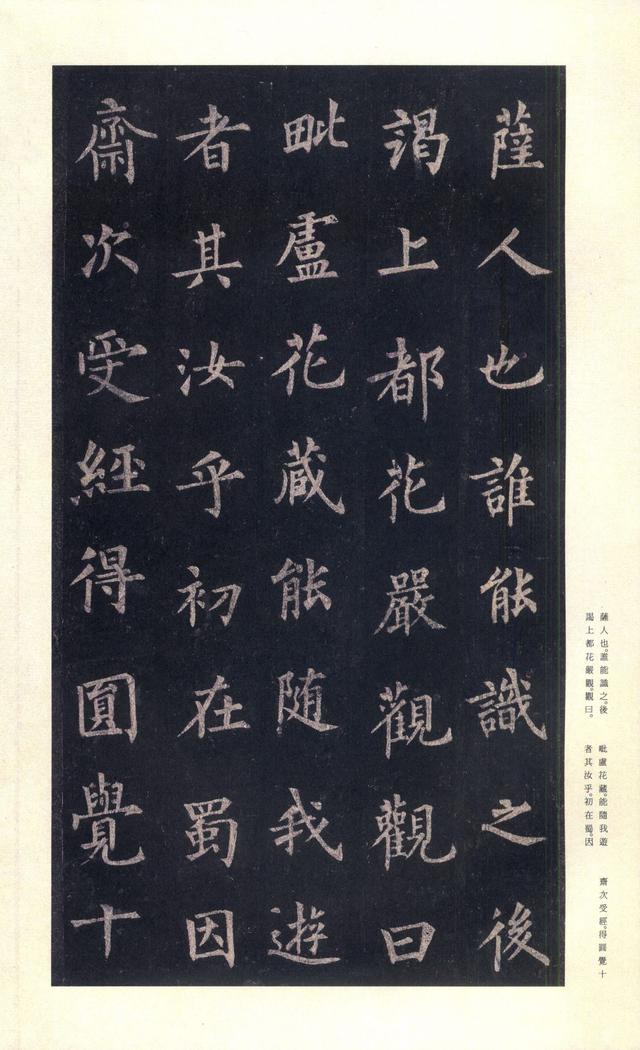 薩人也誰能識之後
謁上都花嚴觀觀曰
毗盧花藏能随我遊
者其汝乎初在蜀因
齋次受經得圓覺十
薩人也。誰能識之。後
謁上都花嚴觀。觀曰。
毗盧花藏。能隨我遊
者其汝乎。初在蜀。因
齋次受經。得圓覺十